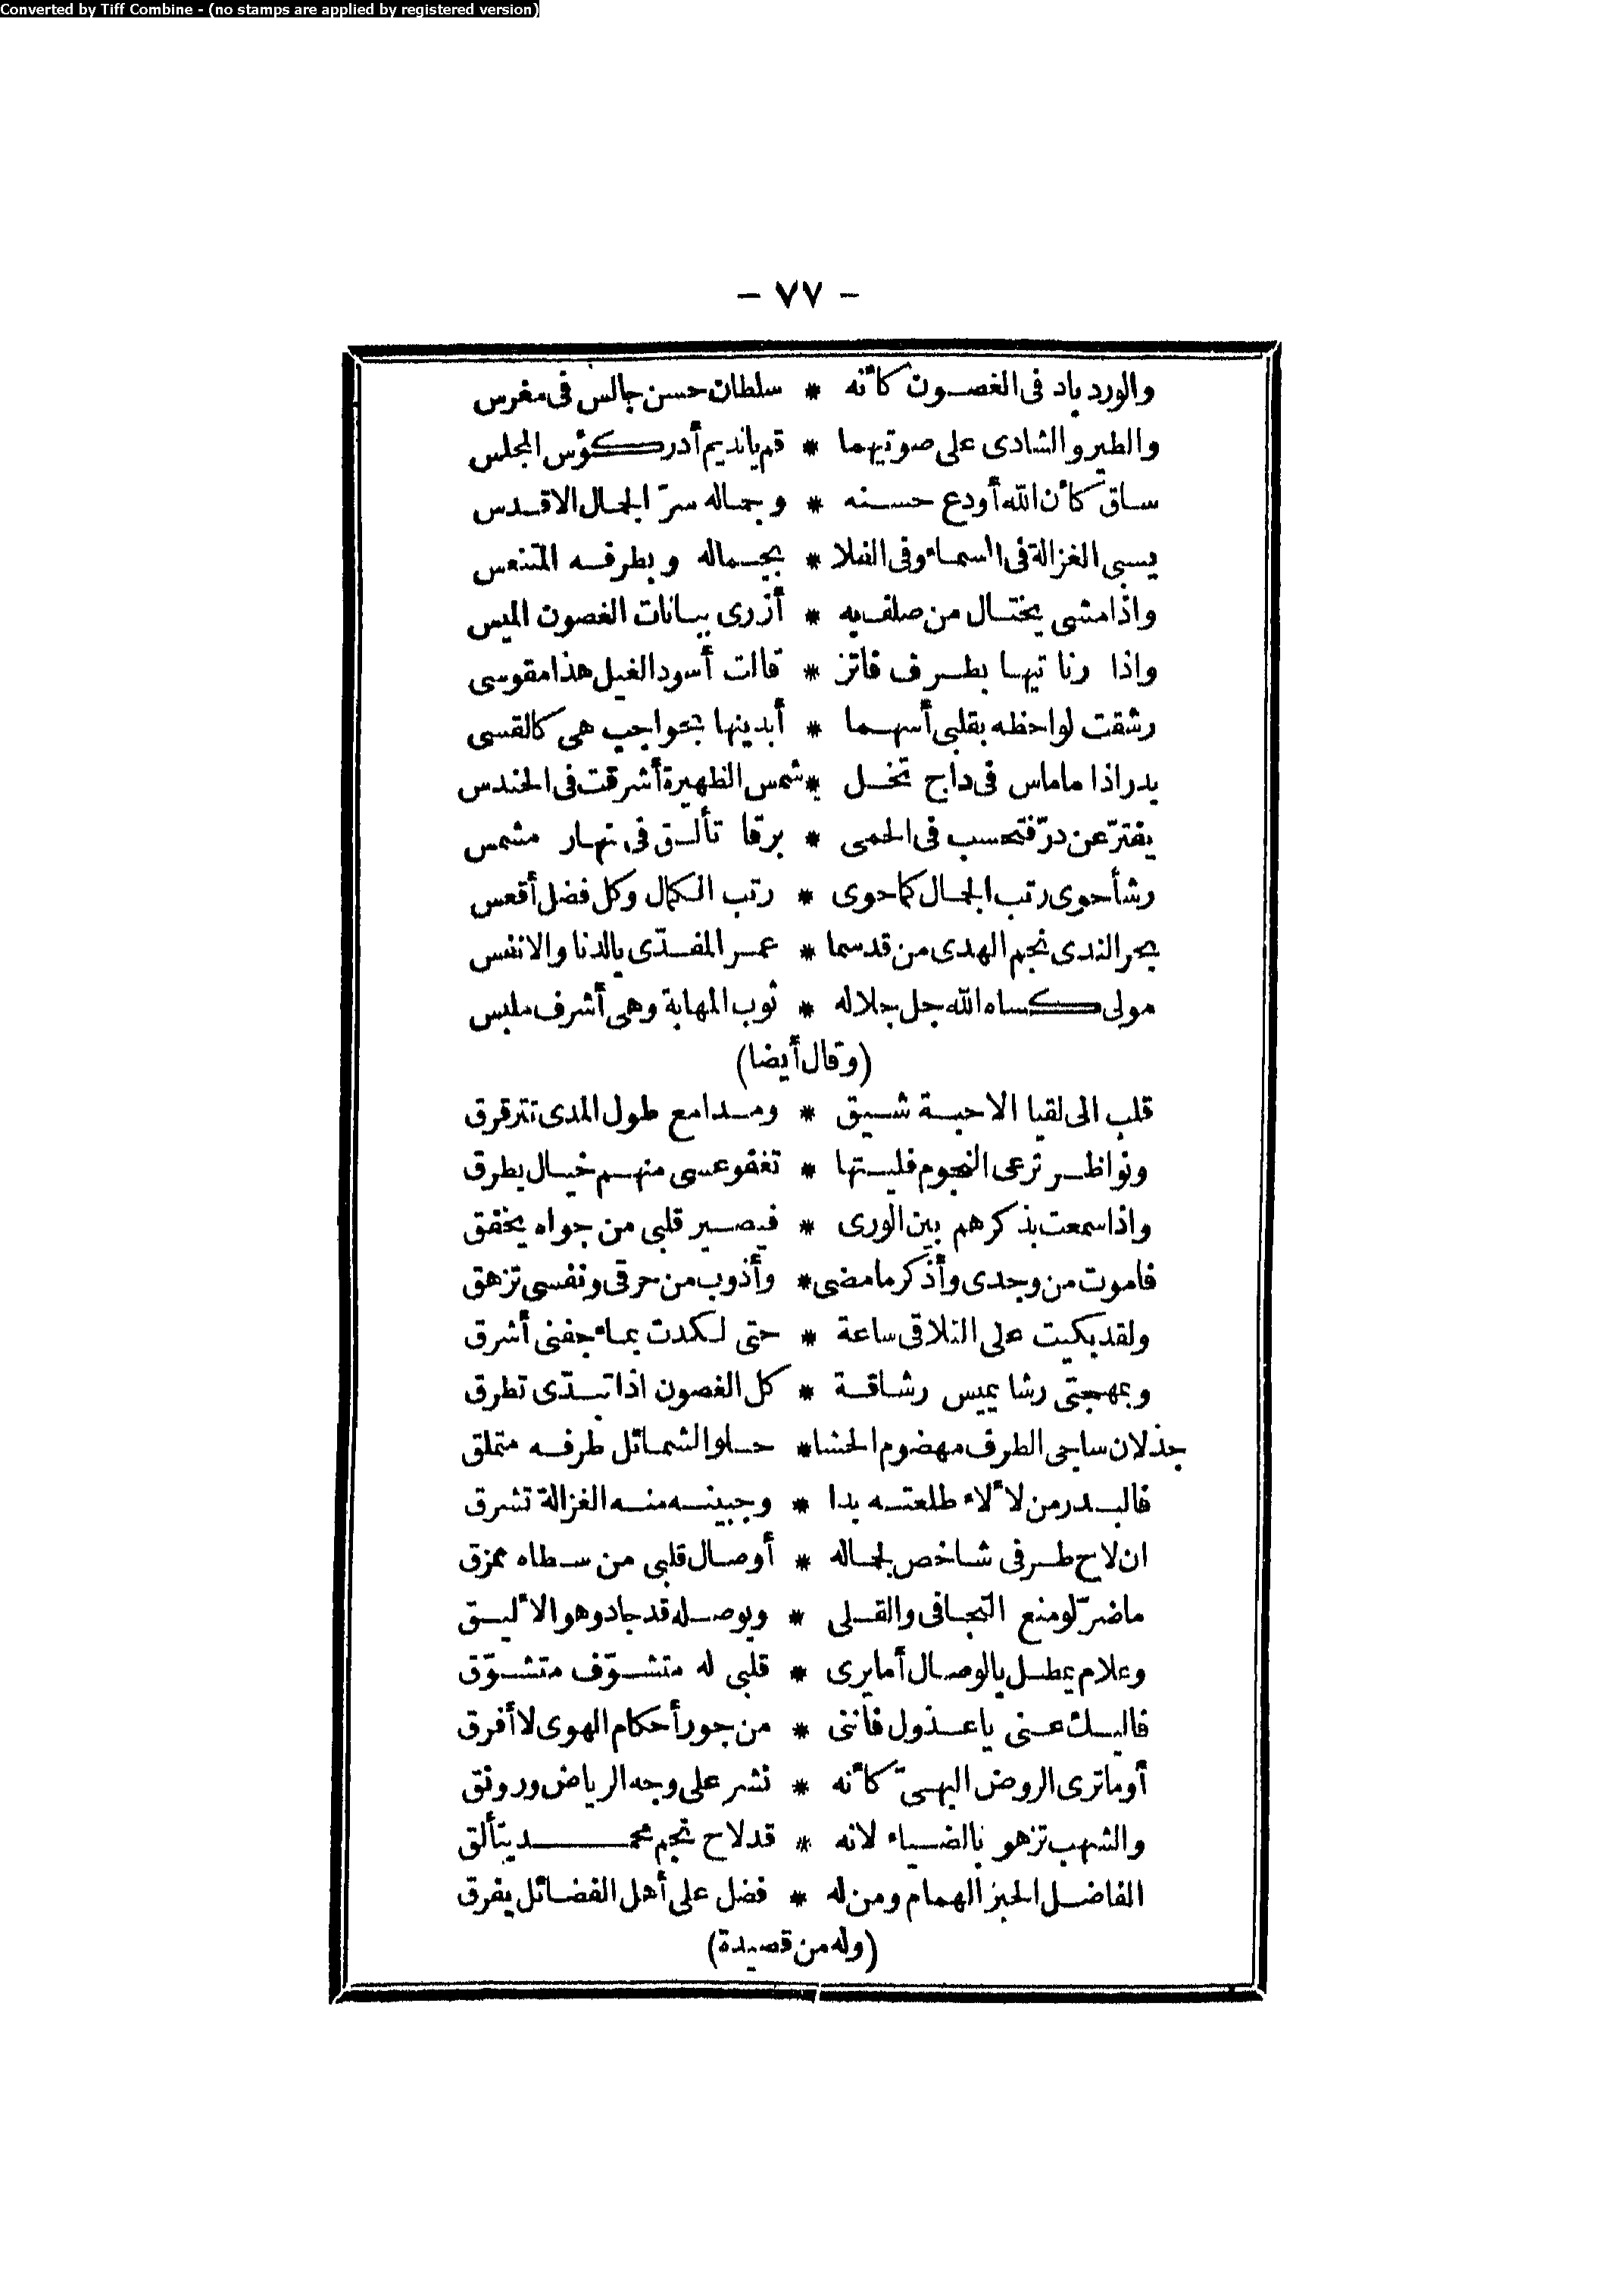 Converted by Tiff Combine - (no stamps are applied by registered version)
- ٧٧ -
والورد باد فى الغصون كأنه * سلطان حسن جالس فى مغرس
والطير والشادى على صوتيهما * قم يا نديم أدر كؤس المجلس
ساق كأن الله أودع حسنه * وجماله سرّ الجمال الاقدس
يسبى الغزالة فى السماء وفى الفلا * بجماله وبطرفه المتنعس
واذا مشى يختال من صلف به * أزرى ببانات الغصون الميس
واذا رنا تيها بطرف فاتر * قالت أسود الغيل هذا مقوسى
رشقت لواحظه بقلبى أسهما * أبدينها بحواجب هى كالقسى
بدر اذا ما ماس فى داج تخل * شمس الظهيرة أشرقت فى الحندس
يفترّ عن درّ فتحسب فى الحمى * برقا تألق فى نهار مشمس
رشأ حوى رتب الجمال كما حوى * رتب الكمال وكل فضل أقعس
بحر الندى نجم الهدى من قد سما * عمر المفدّى بالدنا والانفس
مولى كساه الله جل جلاله * ثوب المهابة وهى أشرف ملبس
(وقال أيضا)
قلب الى لقيا الاحبة شيق * ومدامع طول المدى تترقرق
ونواظر ترعى النجوم فليتها * تغفو عسى منهم خيال يطرق
واذا سمعت بذكرهم بين الورى * فيصير قلبى من جواه يخفق
فاموت من وجدى وأذكر ما مضى * وأذوب من حرقى ونفسى تزهق
ولقد بكيت على التلاقى ساعة * حتى لكدت بماء جفنى أشرق
وبمهجتى رشا يميس رشاقة * كل الغصون اذا تبدّى تطرق
جذلان ساجى الطرف مهضوم الحشا * حلو الشمائل طرفه متملق
فالبدر من لألاء طلعته بدا * وجبينه منه الغزالة تشرق
ان لاح طرفى شاخص لجماله * أوصال قلبى من سطاه تمزق
ما ضرّ لو منع التجافى والقلى * وبوصله قد جاد وهو الأليق
وعلام يمطل بالوصال أما يرى * قلبى له متشوّف متشوّق
فاليك عنى يا عذول فاننى * من جور أحكام الهوى لا أفرق
أوما ترى الروض البهىّ كأنه * نشر على وجه الرياض ورونق
والشهب تزهو بالضياء لانه * قد لاح نجم محمد يتألق
الفاضل الحبر الهمام ومن له * فضل على أهل الفضائل يفرق
(وله من قصيدة)